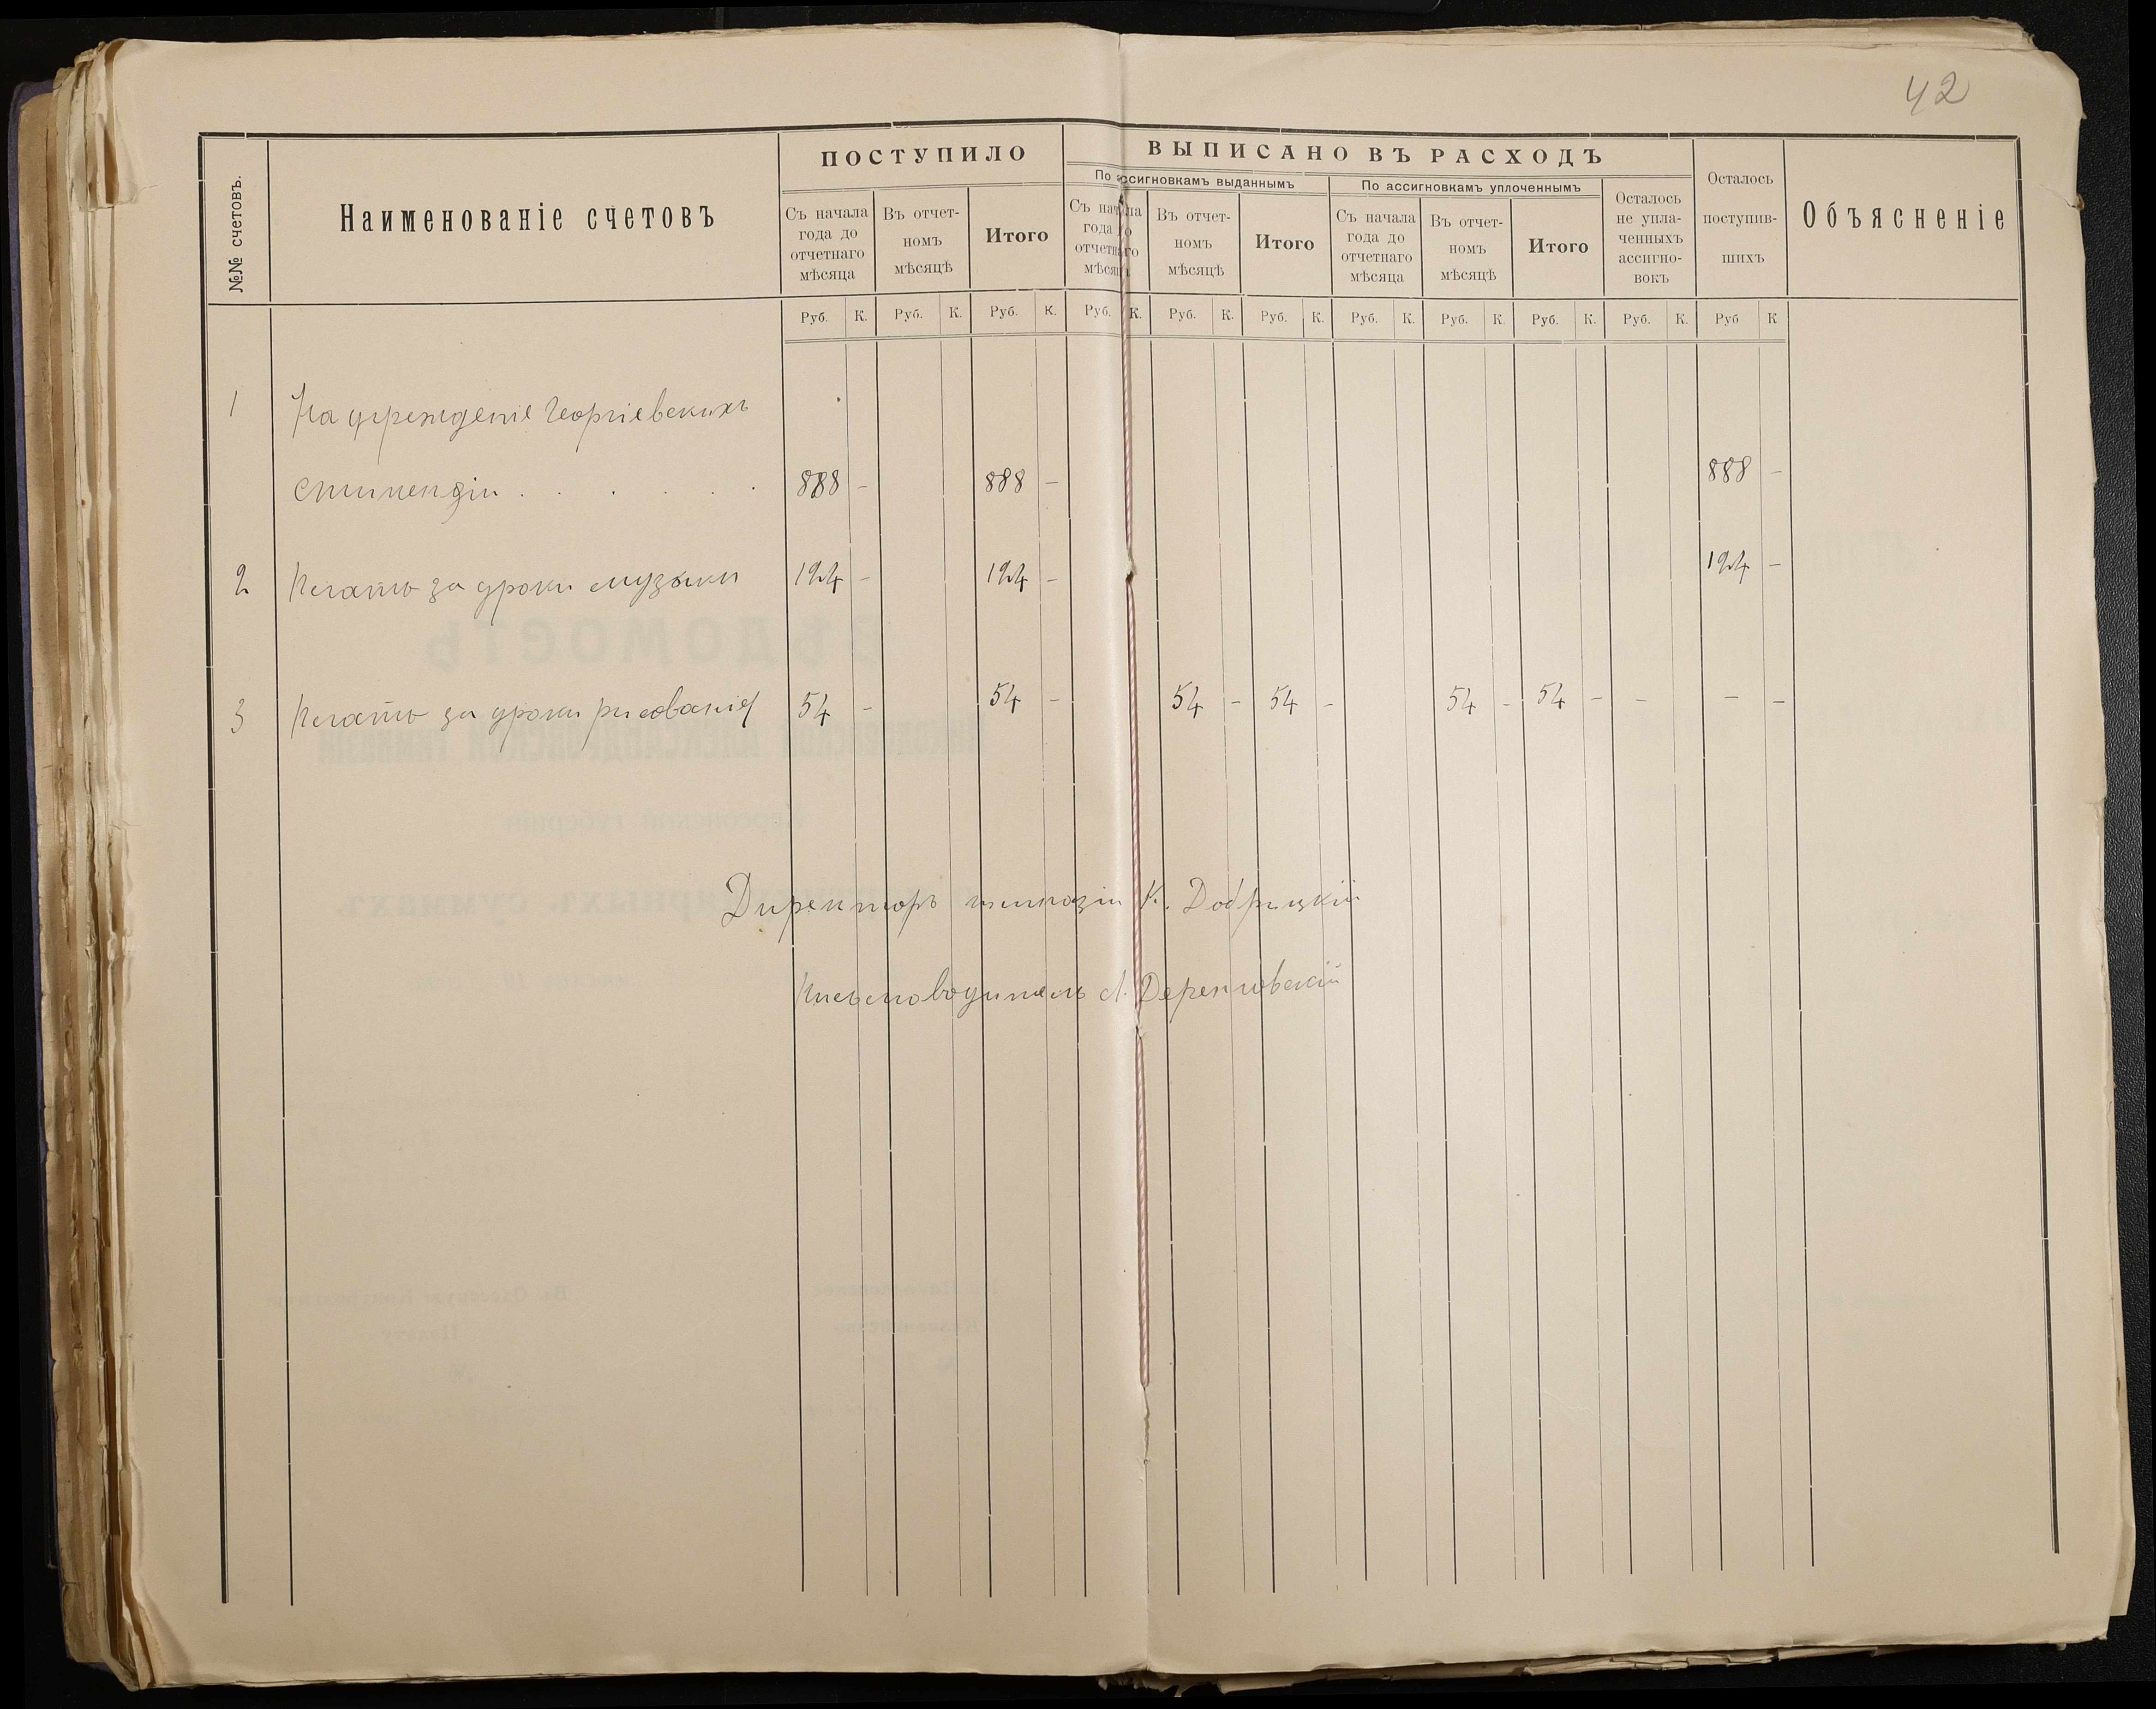 42
№№ счетовъ.
Наименованіе счетовъ
ПОСТУПИЛО
ВЫПИСАНО ВЪ РАСХОДЪ
По ассигновкамъ выданнымъ
По ассигновкамъ уплоченнымъ
Съ начала года до отчетнаго мѣсяца
Въ отчет-номъ мѣсяцѣ
Итого
Съ начала года до отчетнаго мѣсяца
Въ отчет-номъ мѣсяцѣ
Итого
Съ начала года до отчетнаго мѣсяца
Въ отчет-номъ мѣсяцѣ
Итого
Осталось не упла-ченныхъ ассигно-вокъ
Осталось поступив-шихъ
Объясненіе
Руб. К. Руб. К. Руб. К. Руб. К. Руб. К. Руб. К. Руб. К. Руб. К. Руб. К. Руб. К. Руб К
1 На учрежденіе Георгіевскихъ
стипендіи . . . . . . 888 - 888 - 888 -
2 за уроки музыки 124 - 124 - 124 -
3 за уроки рисованія 54 - 54 - 54 - 54 - 54 - 54 - - - -
Директоръ гимназіи К. Добрицкій
Письмоводитель
ВѢДОМОСТЬ
Николаевской Александровской гимназіи
Херсонской губерніи
суммахъ